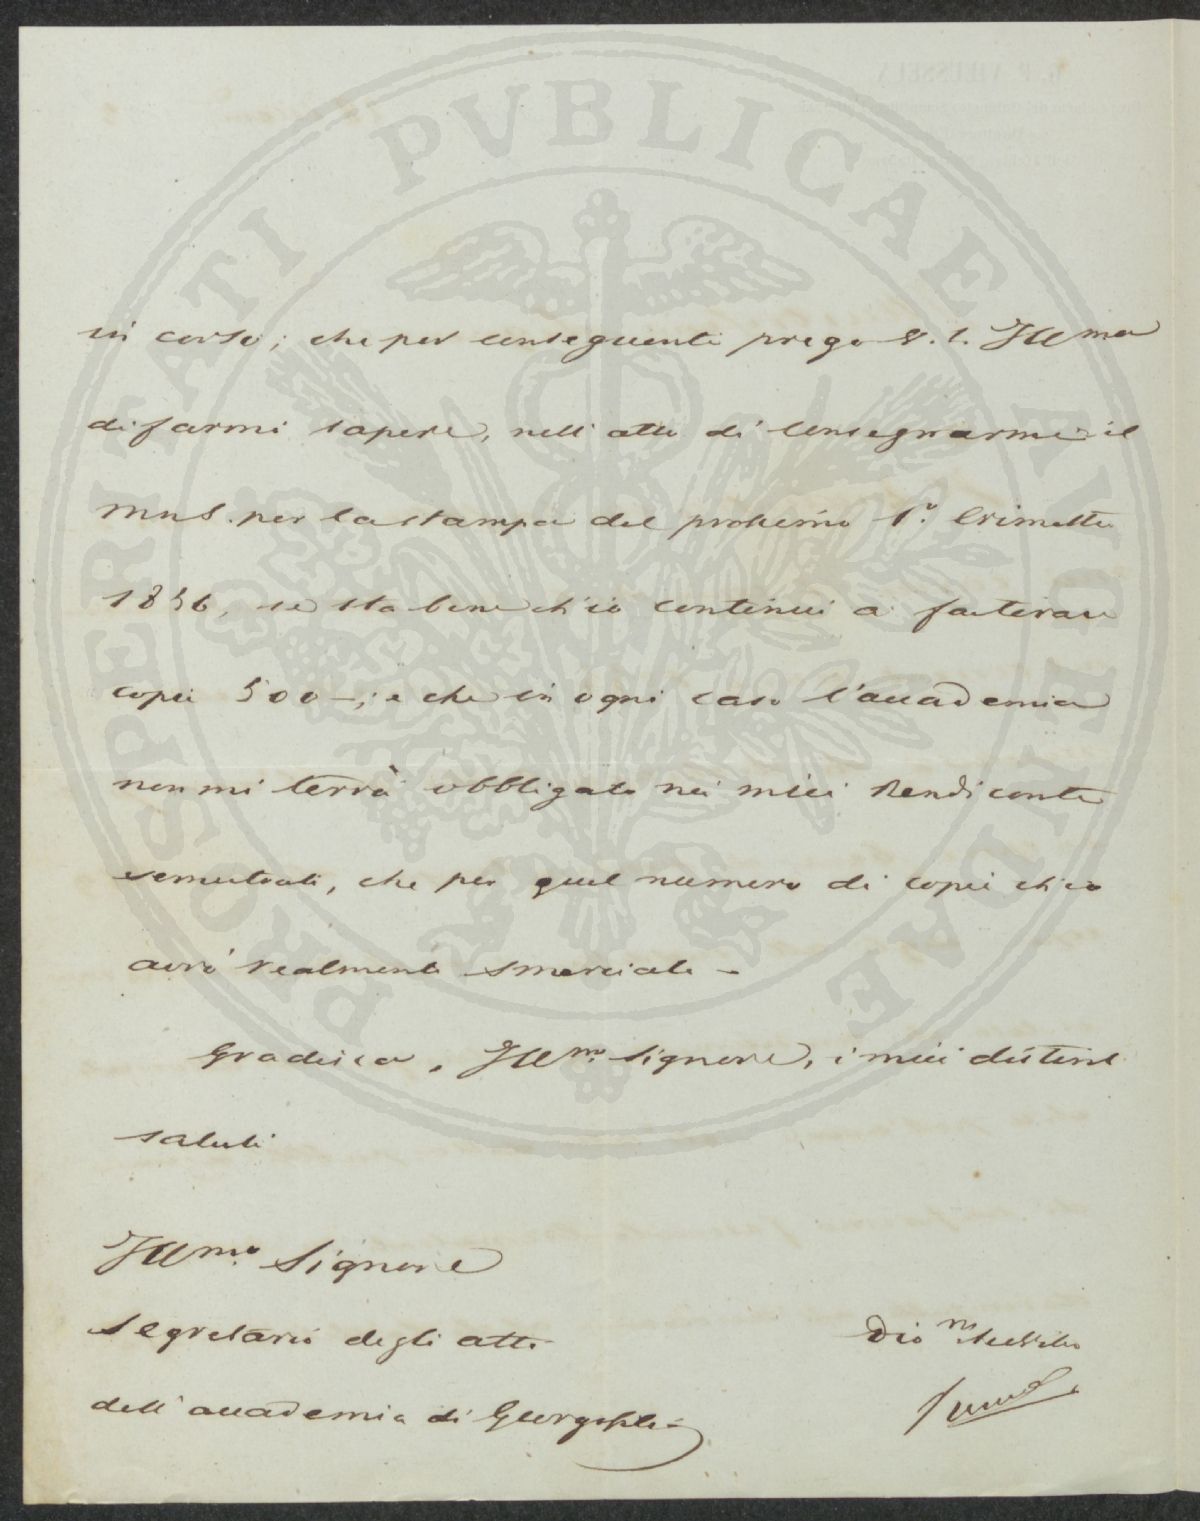 PROSPERITATI PVBLICAE AVGENDAE
in corso; che per conseguente prego S. S. Ill.ma
di farmi sapere, nell'atto di consegnarmi il
mns. per la stampa del prossimo 1°. Trimestre
1856, se sta bene ch'io continui a far tirare
copie 500 -; e che in ogni caso l'accademia
non mi terrà obbligato nei miei Rendiconti
semestrali, che per quel numero di copie ch'io
avrò realmente smerciate -
Gradisca, Ill.mo Signore, i miei distinti
saluti
Ill.mo Signore
Segretario degli atti
dell'accademia di Georgofili